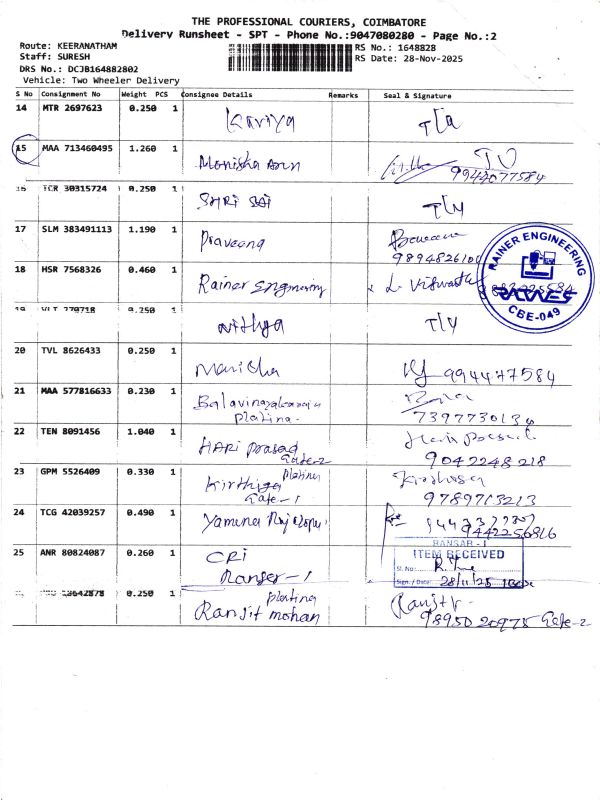 THE PROFESSIONAL COURIERS, COIMBATORE
Delivery Runsheet - SPT - Phone No.:9047080280 - Page No.:2
Route: KEERANATHAM
RS No.: 1648828
Staff: SURESH
RS Date: 28-Nov-2025
DRS No.: DCJB164882802
Vehicle: Two Wheeler Delivery
S No Consignment No Weight PCS Consignee Details Remarks Seal & Signature
14 MTR 2697623 0.250 1 Kaviya
15 MAA 713460495 1.260 1 Monisha Arun
9944077584
16 TCR 30315724 0.250 1 SHRI SAI
17 SLM 383491113 1.190 1 Praveena
9894826104
18 HSR 7568326 0.460 1 Rainer Engineering
RAINER ENGINEERING
CBE-049
19 VLT 770718 0.250 1 Nithya
20 TVL 8626433 0.250 1 Manisha 9944077584
21 MAA 577816633 0.230 1
Platina
7397730134
22 TEN 8091456 1.040 1 HARI Prasad
Gate-2
9042248218
23 GPM 5526409 0.330 1 Platina
Kirthiga
Gate-1
9789713213
24 TCG 42039257 0.490 1 Yamuna
9442256816
25 ANR 80824087 0.260 1 CRI
Ranser-1
RANSAR - I
ITEM RECEIVED
Sl. No:
Sign. / Date: 28/11/25
0.250 1 Platina
Ranjit mohan
Ranjit
9895020975 Gate-2